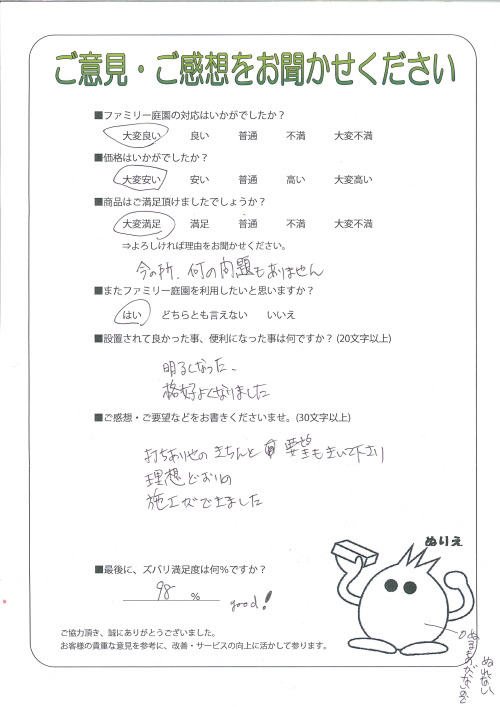 ご意見・ご感想をお聞かせください
■ファミリー庭園の対応はいかがでしたか?
大変良い 良い 普通 不満 大変不満
■価格はいかがでしたか?
大変安い 安い 普通 高い 大変高い
■商品はご満足頂けましたでしょうか?
大変満足 満足 普通 不満 大変不満
⇒よろしければ理由をお聞かせください。
今の所、何の問題もありません
■またファミリー庭園を利用したいと思いますか?
はい どちらとも言えない いいえ
■設置されて良かった事、便利になった事は何ですか? (20文字以上)
明るくなった、
格好よくなりました
■ご感想・ご要望などをお書きくださいませ。(30文字以上)
打ちあわせの きちんと 要望もきいて下さり
理想どおりの
施工ができました
ぬりえ
■最後に、ズバリ満足度は何%ですか?
98 % good!
ご協力頂き、誠にありがとうございました。
お客様の貴重な意見を参考に、改善・サービスの向上に活かして参ります。
ぬるものがないので
ぬれない